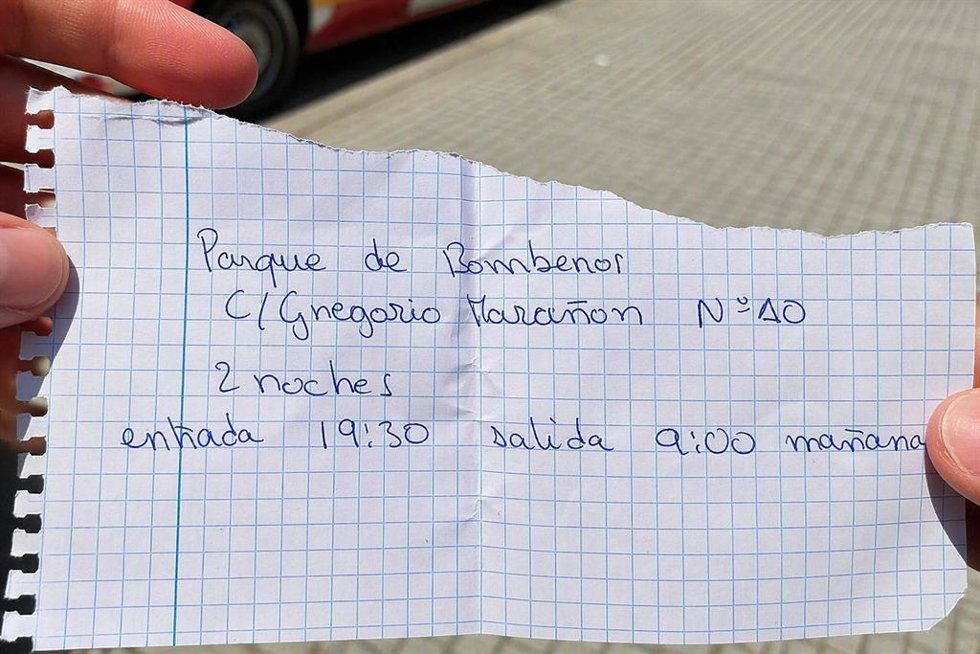 Parque de Bomberos
C/Gregorio Marañon Nº10
2 noches
entrada 19:30 salida 9:00 mañana